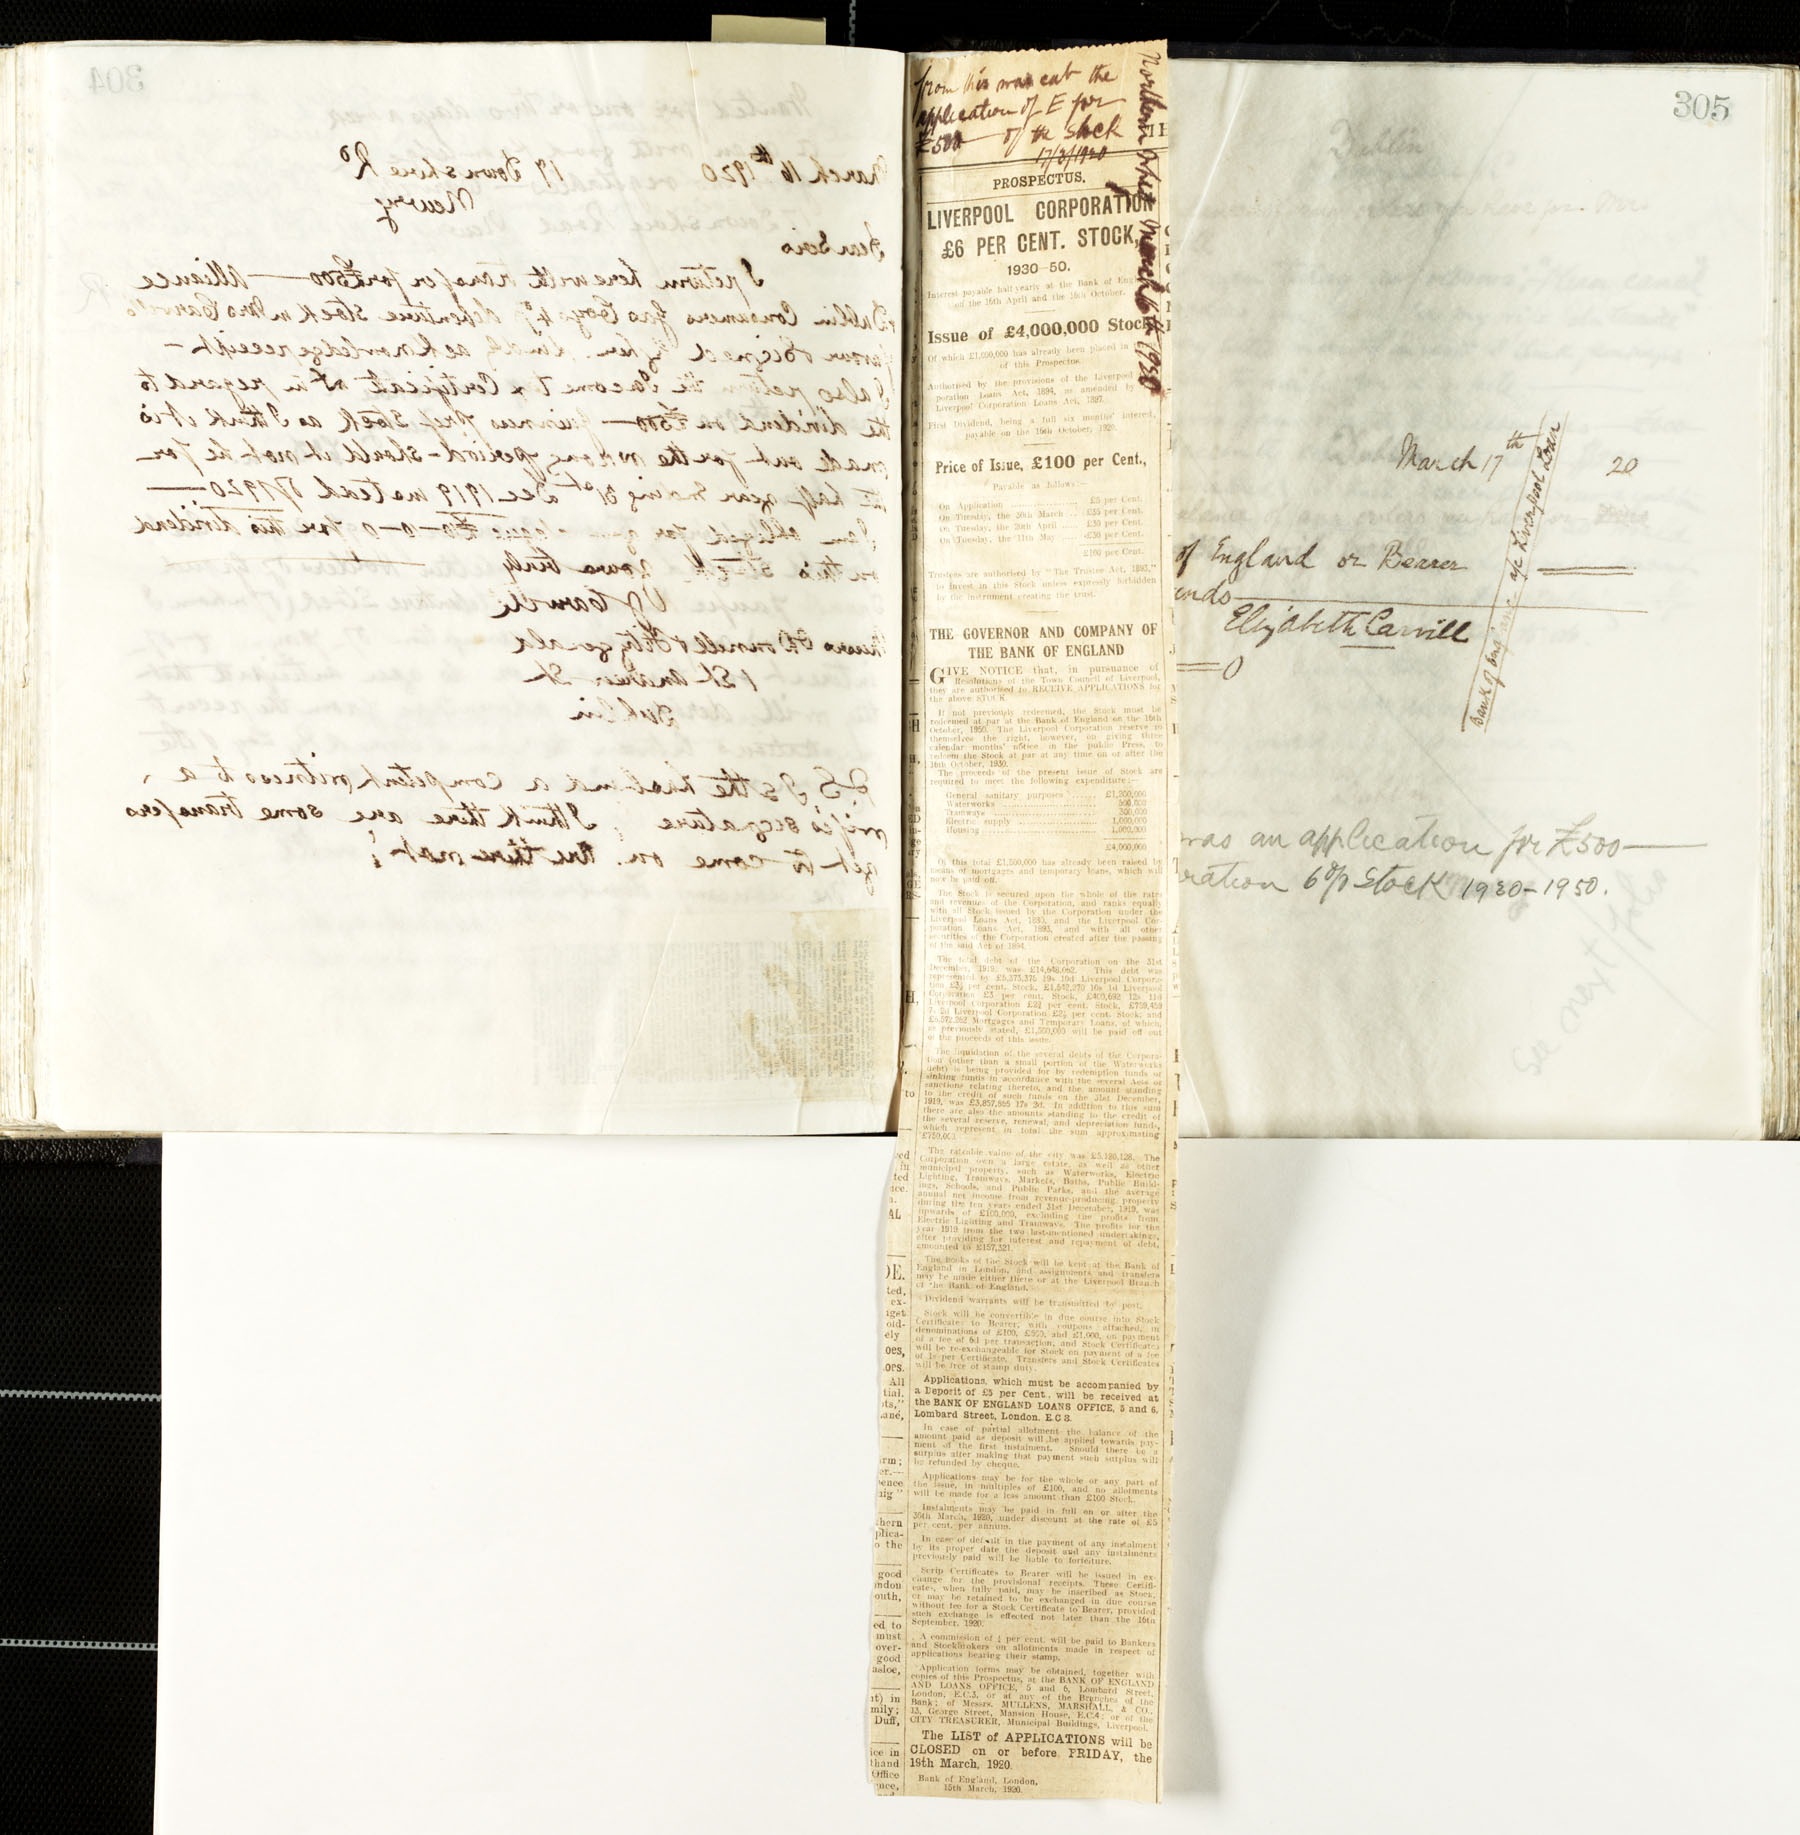 304
March 16th 1920 17 Downshire Rd
Newry
Dear Sirs
I return herewith transfer for £500 — Alliance
Dublin Consumers Gas Coys 4% debenture Stock in Mrs Carvill's
favour signed
kindly acknowledge receipt —
I also return the Income Tax Certificate in regard to
the dividend on £500 — Guinness Pref Stock as I think it is
made out for the wrong period — Should it not be for
the half year ending 31st Dec 1919 instead of 1920 —
I am obliged for
for this dividend
on this Stock
yours truly
Carvill
Messrs O'Donnell & Fitzgerald
1 St Andrew St
Dublin
PS Is the husband a competent witness to a
wife's signature; I think there are some transfers
yet to come on. Are there not?
from this was cut the
application of E for
£500 — of the Stock
17/3/1920
Northern Whig March 16th 1920
PROSPECTUS.
LIVERPOOL CORPORATION
£6 PER CENT. STOCK,
1930-50.
Interest payable half yearly at the Bank of Eng
on the 16th April and the 16th October.
Issue of £4,000,000 Stock
Of which £1,000,000 has already been placed in
of this Prospectus.
Authorised by the provisions of the Liverpool
poration Loans Act, 1894, as amended by
Liverpool Corporation Loans Act, 1897.
First Dividend, being a full six months' interest,
payable on the 16th October, 1920.
Price of Issue, £100 per Cent.,
Payable as follows:—
On Application ............ £5 per Cent.
On Tuesday, the 30th March ..... £35 per Cent.
On Tuesday, the 20th April ..... £30 per Cent.
On Tuesday, the 11th May ..... £30 per Cent.
£100 per Cent.
Trustees are authorised by "The Trustee Act, 1893,"
to invest in this Stock unless expressly forbidden
by the instrument creating the trust.
THE GOVERNOR AND COMPANY OF
THE BANK OF ENGLAND
GIVE NOTICE that, in pursuance of
Resolutions of the Town Council of Liverpool,
they are authorised to RECEIVE APPLICATIONS for
the above STOCK
If not previously redeemed, the Stock must be
redeemed at par at the Bank of England on the 16th
October, 1950. The Liverpool Corporation reserve to
themselves the right, however, on giving three
calendar months' notice in the public Press, to
redeem the Stock at par at any time on or after the
16th October, 1930.
The proceeds of the present issue of Stock are
required to meet the following expenditure:—
General sanitary purposes ...... £1,200,000
Waterworks ........................ 500,000
Tramways ........................ 300,000
Electric supply .................. 1,000,000
Housing ........................ 1,000,000
£4,000,000
Of this total £1,500,000 has already been raised by
means of mortgages and temporary loans, which will
now be paid off.
The Stock is secured upon the whole of the rates
and revenues of the Corporation, and ranks equally
with all Stock issued by the Corporation under the
Liverpool Loans Act, 1880, and the Liverpool Cor-
poration Loans Act, 1893, and with all other
securities of the Corporation created after the passing
of the said Act of 1894.
The total debt of the Corporation on the 31st
December, 1919, was £14,648,062. This debt was
represented by £6,373,376 19s 10d Liverpool Corpora-
tion £3½ per cent. Stock, £1,542,270 16s 1d Liverpool
Corporation £3 per cent. Stock, £400,692 12s 11d
Liverpool Corporation £2¾ per cent. Stock, £759,459
7s 2d Liverpool Corporation £2½ per cent. Stock, and
£5,572,262 Mortgages and Temporary Loans, of which,
as previously stated, £1,500,000 will be paid off out
of the proceeds of this issue.
The liquidation of the several debts of the Corpora-
tion (other than a small portion of the Waterworks
debt) is being provided for by redemption funds or
sinking funds in accordance with the several Acts or
sanctions relating thereto, and the amount standing
to the credit of such funds on the 31st December,
1919, was £3,857,866 17s 2d. In addition to this sum
there are also the amounts standing to the credit of
the several reserve, renewal, and depreciation funds,
which represent in total the sum approximating
£750,000.
The rateable value of the city was £5,120,128. The
Corporation own a large estate, as well as other
municipal property, such as Waterworks, Electric
Lighting, Tramways, Markets, Baths, Public Build-
ings, Schools, and Public Parks, and the average
annual net income from revenue-producing property
during the ten years ended 31st December, 1919, was
upwards of £100,000, excluding the profits from
Electric Lighting and Tramways. The profits for the
year 1919 from the two last-mentioned undertakings,
after providing for interest and repayment of debt,
amounted to £157,321.
The books of the Stock will be kept at the Bank of
England in London, and assignments and transfers
may be made either there or at the Liverpool Branch
of the Bank of England.
Dividend warrants will be transmitted by post.
Stock will be convertible in due course into Stock
Certificates to Bearer, with coupons attached, in
denominations of £100, £500, and £1,000, on payment
of a fee of 6d per transaction, and Stock Certificates
will be re-exchangeable for Stock on payment of a fee
of 1s per Certificate. Transfers and Stock Certificates
will be free of stamp duty.
Applications, which must be accompanied by
a Deposit of £5 per Cent., will be received at
the BANK OF ENGLAND LOANS OFFICE, 5 and 6,
Lombard Street, London, E.C 3.
In case of partial allotment the balance of the
amount paid as deposit will be applied towards pay-
ment of the first instalment. Should there be a
surplus after making that payment such surplus will
be refunded by cheque.
Applications may be for the whole or any part of
the issue, in multiples of £100, and no allotments
will be made for a less amount than £100 Stock.
Instalments may be paid in full on or after the
30th March, 1920, under discount at the rate of £5
per cent. per annum.
In case of default in the payment of any instalment
by its proper date the deposit and any instalments
previously paid will be liable to forfeiture.
Scrip Certificates to Bearer will be issued in ex-
change for the provisional receipts. These Certifi-
cates, when fully paid, may be inscribed as Stock,
or may be retained to be exchanged in due course
without fee for a Stock Certificate to Bearer, provided
such exchange is effected not later than the 16th
September, 1920.
A commission of ¼ per cent. will be paid to Bankers
and Stockbrokers on allotments made in respect of
applications bearing their stamp.
Application forms may be obtained, together with
copies of this Prospectus, at the BANK OF ENGLAND
AND LOANS OFFICE, 5 and 6, Lombard Street,
London, E.C.3, or at any of the Branches of the
Bank; of Messrs. MULLENS, MARSHALL, & CO.,
13, George Street, Mansion House, E.C.4; or of the
CITY TREASURER, Municipal Buildings, Liverpool.
The LIST of APPLICATIONS will be
CLOSED on or before FRIDAY, the
19th March, 1920.
Bank of England, London,
15th March, 1920.
305
March 17th 20
of England or Bearer
unds
Elizabeth Carvill
Bank of England a/c Liverpool Loan
was an application for £500 —
ration 6% Stock 1930-1950.
See next folio